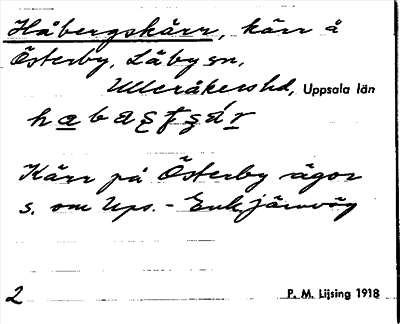 Håbergskärr, kärr å
Österby, Läby sn,
Ulleråkers hd, Uppsala län
Kärr på Österby ägor
s. om Ups. - Enk. järnväg
2 P. M. Lijsing 1918